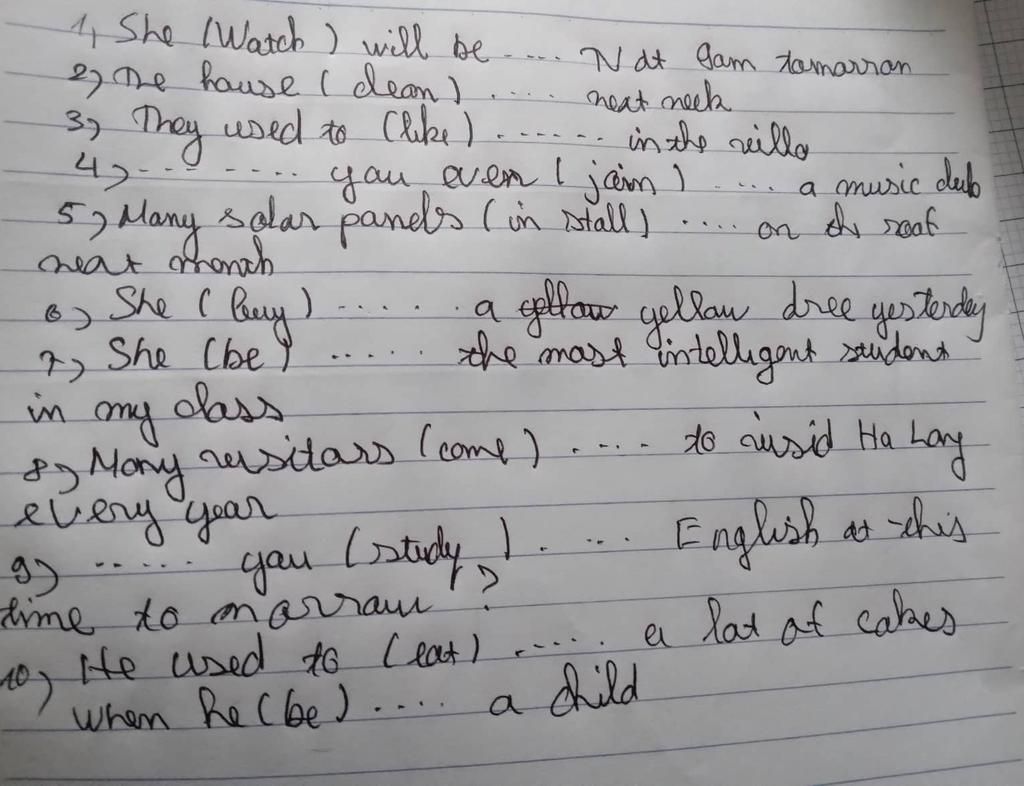 1, She (Watch) will be .... TV at 9am tomorrow
2, The house (clean) .... next week
3, They used to (like) ...... in the villa
4, ........ you ever (join) .... a music club
5, Many solar panels (in stall) .... on the roof
next month
6, She (buy) ...... a yellow yellow dree yesterday
7, She (be) ...... the most intelligent student
in my class
8, Many visitors (come) ..... to visid Ha Long
every year
9, ...... you (study) .... English at this
time to morrow?
10, He used to (eat) ..... a lot of cakes
when he (be) .... a child